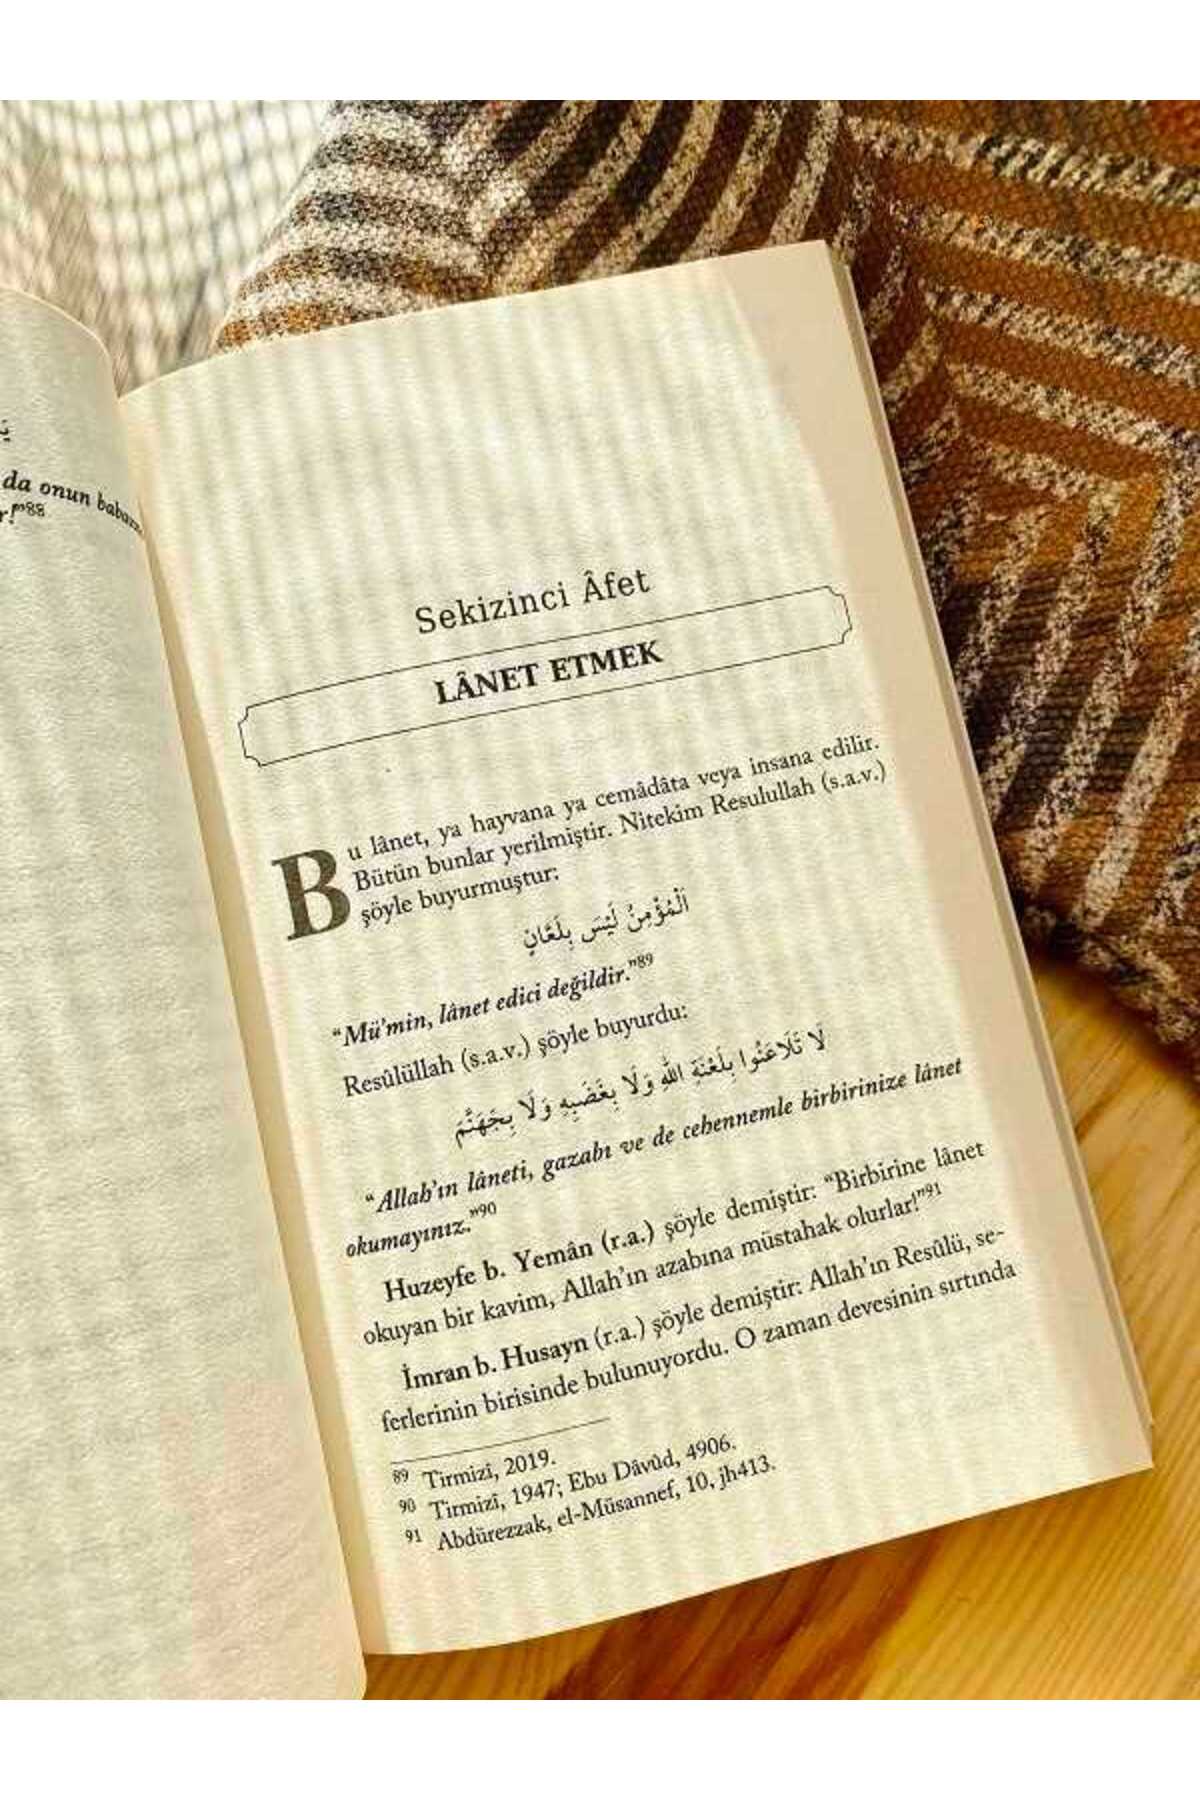 يَـ
da onun babası
r!”88
Sekizinci Âfet
LÂNET ETMEK
Bu lânet, ya hayvana ya cemâdâta veya insana edilir.
Bütün bunlar yerilmiştir. Nitekim Resulullah (s.a.v.)
şöyle buyurmuştur:
اَلْمُؤْمِنُ لَيْسَ بِلَعَّانٍ
“Mü’min, lânet edici değildir.”89
Resûlüllah (s.a.v.) şöyle buyurdu:
لَا تَلَاعَنُوا بِلَعْنَةِ اللهِ وَلَا بِغَضَبِهِ وَلَا بِجَهَنَّمَ
“Allah’ın lâneti, gazabı ve de cehennemle birbirinize lânet
okumayınız.”90
Huzeyfe b. Yemân (r.a.) şöyle demiştir: “Birbirine lânet
okuyan bir kavim, Allah’ın azabına müstahak olurlar!”91
İmran b. Husayn (r.a.) şöyle demiştir: Allah’ın Resûlü, se-
ferlerinin birisinde bulunuyordu. O zaman devesinin sırtında
89 Tirmizî, 2019.
90 Tirmizî, 1947; Ebu Dâvûd, 4906.
91 Abdürezzak, el-Müsannef, 10, jh413.